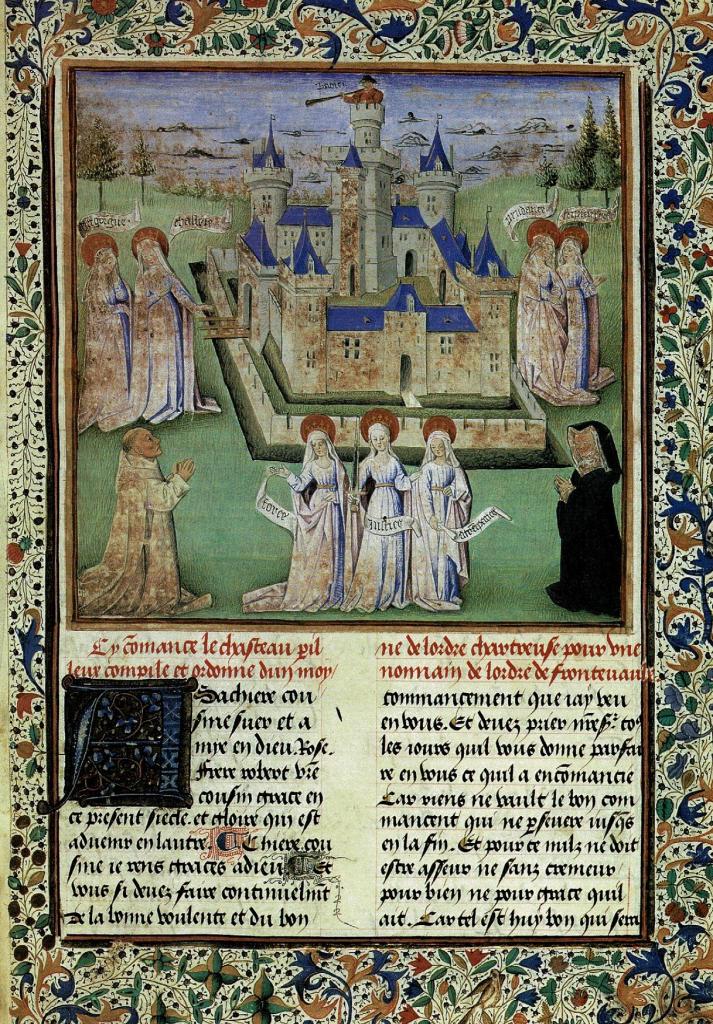 force
justice
Cy cõmance le chasteau pil
leux compile et ordonne dun moy
ne de lordre chartreuse pour vne
nonnain de lordre de frontevaulx
A Sachiere cou
sine suer et a
mye en dieu Rose.
Frere robert vr̃e
cousin grace en
ce present siecle. et gloire qui est
aduenir en lautre. Chiere cou
sine ie rens graces a dieu Et
vous si deuez faire continuelmt̃
de la bonne voulente et du bon
commancement que iay veu
en vous. Et deuez prier
les iours quil vous donne parfai
re en vous ce quil a encõmancie
Car riens ne vault le bon com
mancent qui ne perseuere iusq̃s
en la fin. Et pource nulz ne doit
estre asseur ne sanz cremeur
pour bien ne pour grace quil
ait. Car tel est huy bon qui sera